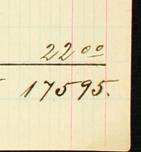 22 00
17595.